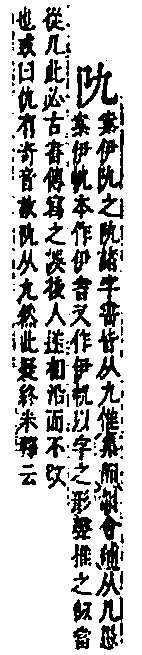 案伊之諸字書皆从九惟集韻會从几恐
案伊本作伊耆又作伊以字之形聲推之似當
從几此必古書傳寫之誤後人遂相沿而不改
也或曰仇有奇音故从九然此疑終未釋云